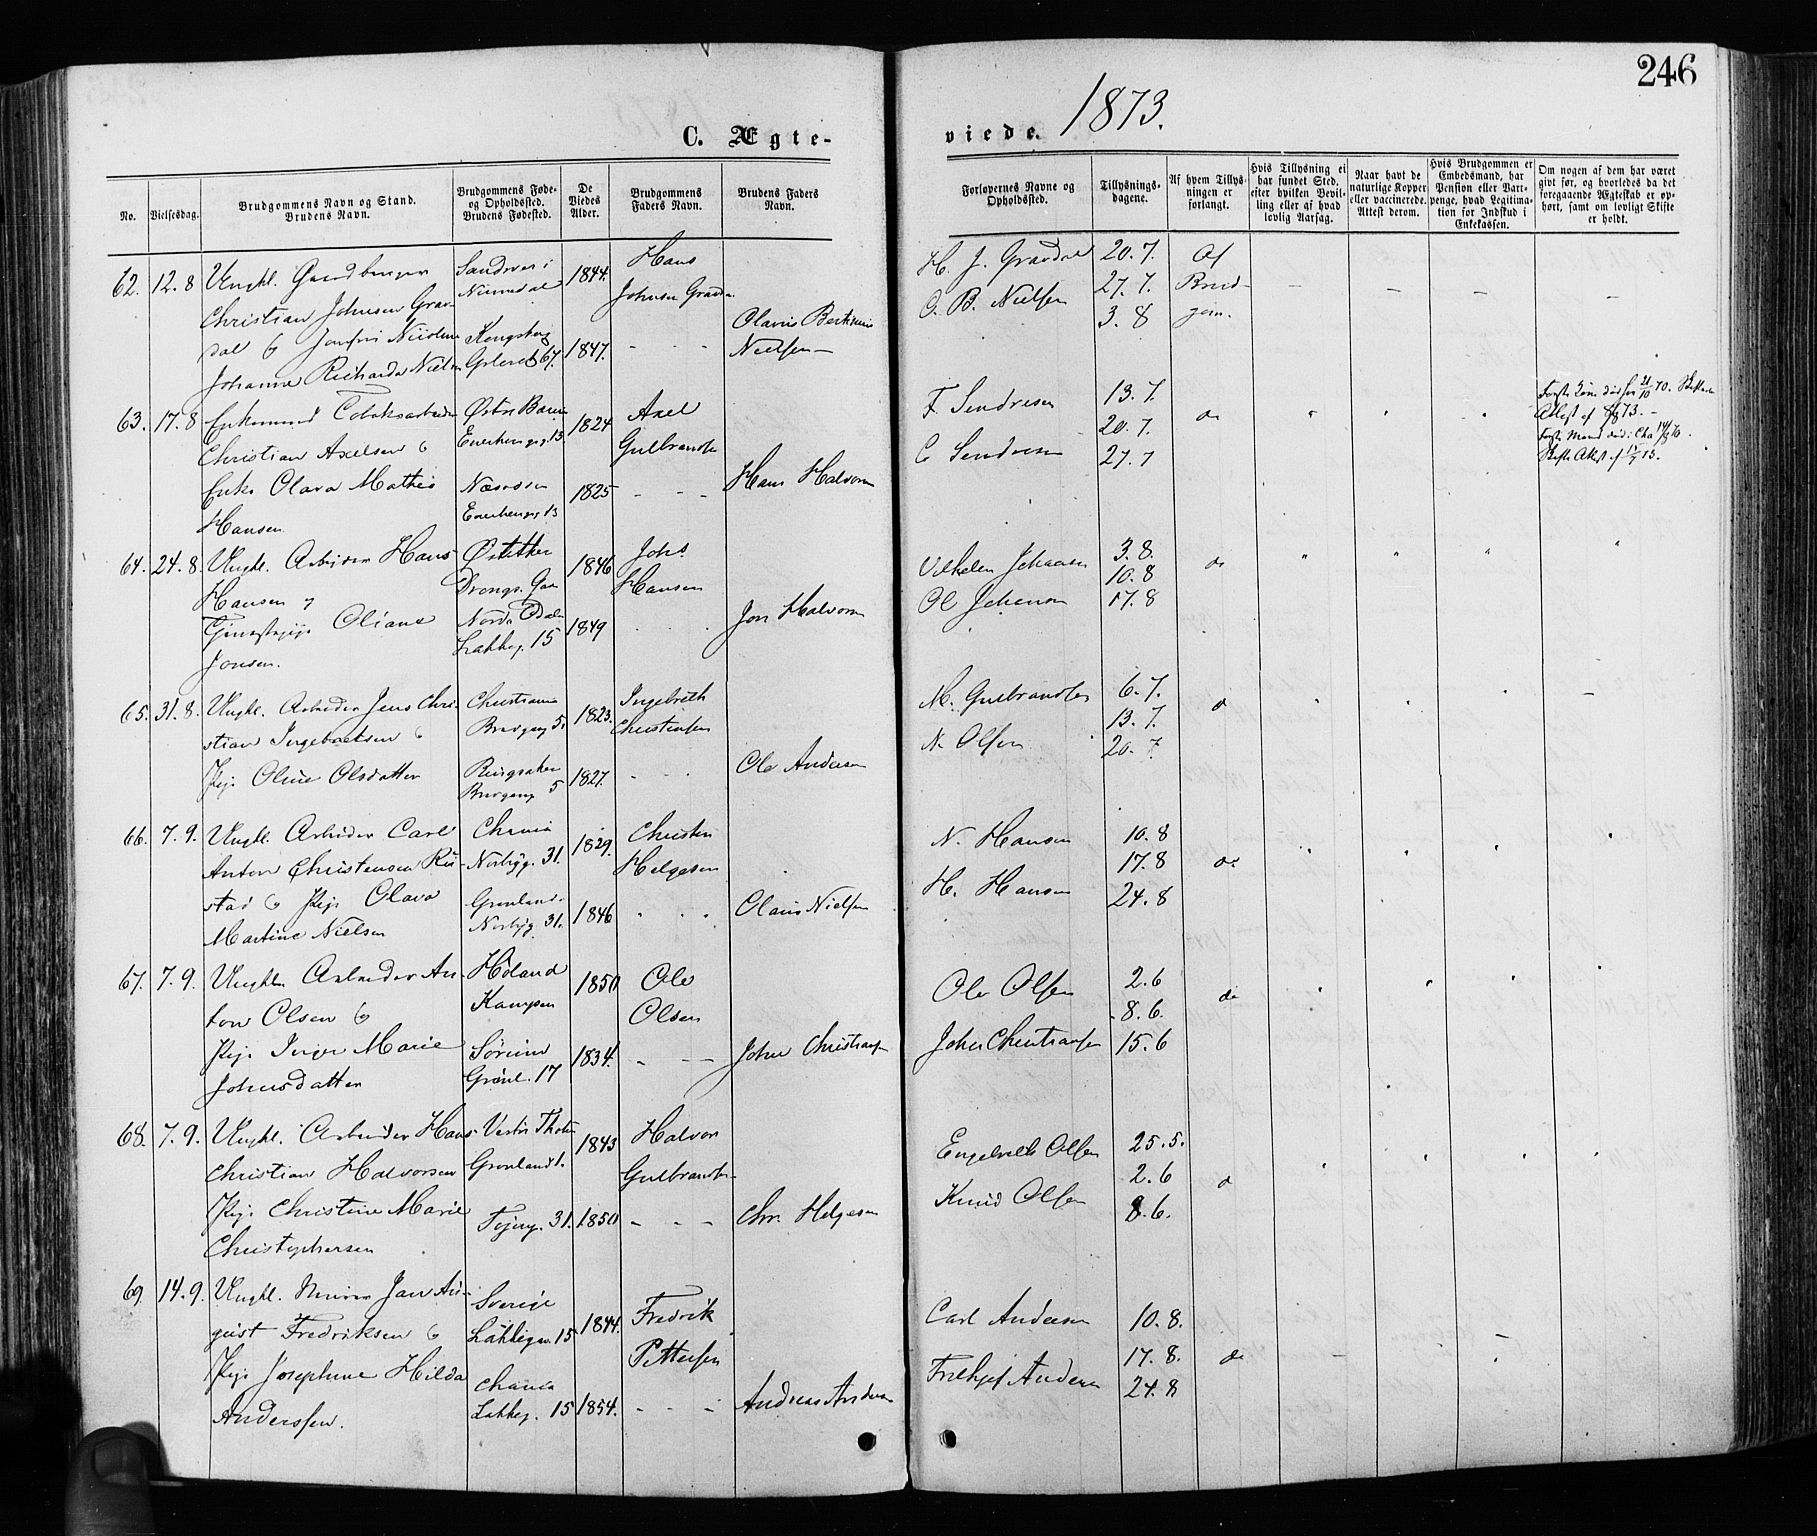 246
1873.
C. Ægte-
viede.
No.
Vielsesdag.
Brudgommens Navn og Stand.
Brudens Navn.
Brudgommens Føde-
og Opholdssted.
Brudens Fødested.
De
Viedes
Alder.
Brudgommens
Faders Navn.
Brudens Faders
Navn.
Forlovernes Navne og
Opholdssted.
Tillysnings-
dagene.
Af hvem Tillys-
ningen er
forlangt.
Hvis Tillysning ei
har fundet Sted,
efter hvilken Bevil-
ling eller af hvad
lovlig Aarsag.
Naar havt de
naturlige Kopper
eller vaccinerede.
Attest derom.
Hvis Brudgommen er
Embedsmand, har
Pension eller Vart-
penge, hvad Legitima-
tion for Indskud i
Enkekassen.
Om nogen af dem har været
givt før, og hvorledes da det
foregaaende Ægteskab er op-
hørt, samt om lovligt Skifte
er holdt.
62. 12.8 Ungkl. Gaardbruger
Christian Johnsen Grav-
dal &
Johanne Richarda Niels
Sandsver i
Numedal
Kongsberg
67.
1844.
1847.
Hans
Johnsen Gravdal
Nielsen
H. J. Gravdal
O. B. Nielsen
20. 7.
27. 7.
3. 8
Af
Brud-
gom.
63. 17.8 Enkemand Tobaksarbeider
Christian Axelsen &
Enke Olava Mathea
Hansen
Enerhaugg. 13
Næsodden
Enerhaugg 13
1824
1825
Axel
Gulbrandsen
Hans Halvorsen
F. Sendresen
C Sendresen
13. 7.
20. 7.
27. 7
do
64. 24.8. Ungkl. Arbeider Hans
Hansen og
Tjenestepige Oliane
Jonsen.
Nordre Odalen
Lakkeg. 15
1846
1849
Johs
Hansen
Jon Halvorsen
Vilhelm Johansen
Ol Johansen
3. 8.
10. 8
17. 8
do
65. 31.8. Ungkl. Arbeider Jens Chri-
stian Ingebretsen &
Pige Oline Olsdatter
Christiania
5.
Ringsaker
5
1823.
1827.
Ingebreth
Christensen
Ole Andersen
M. Gulbrandsen
N. Olsen
6. 7.
13. 7.
20. 7
do
66. 7.9. Ungkl. Arbeider Carl
Anton Christensen Ru-
stad & Pige Olava
Martine Nielsen
Chrania
Norbyg. 31.
Grønland
Norbyg. 31.
1829.
1846
Christen
Helgesen
Olaus Nielsen
N. Hansen
H. Hansen
10. 8
17. 8
24. 8
do
67. 7.9. Ungkl. Arbeider An-
ton Olsen &
Pige Inger Marie
Johnsdatter
Høland
Kampen
Sørum
Grønl. 17
1850
1834.
Ole
Olsen
John Christiansen
Ole Olsen
John Christiansen
2. 6
8. 6.
15. 6
do
68. 7.9. Ungkl. Arbeider Hans
Christian Halvorsen
Pige Christine Marie
Christophersen
Vestre Thoten
Grønland 1.
Tøjeng. 31.
1843
1850
Halvor
Gulbrandsen
Chr. Helgesen
Engelvelt Olsen
Knud Olsen
25. 5.
2. 6
8. 6.
do
69. 14.9. Ungkl. Murer Jan Au-
gust Fredriksen &
Pige Josephine Hilda
Anderssen.
Sverige
Lakkegan. 15
Chania
Lakkeg. 15
1844.
1854.
Fredrik
Pettersen
Andreas Andersen
Carl Andersen
Fridthjof Andersen
10. 8.
17. 8.
24. 8
do